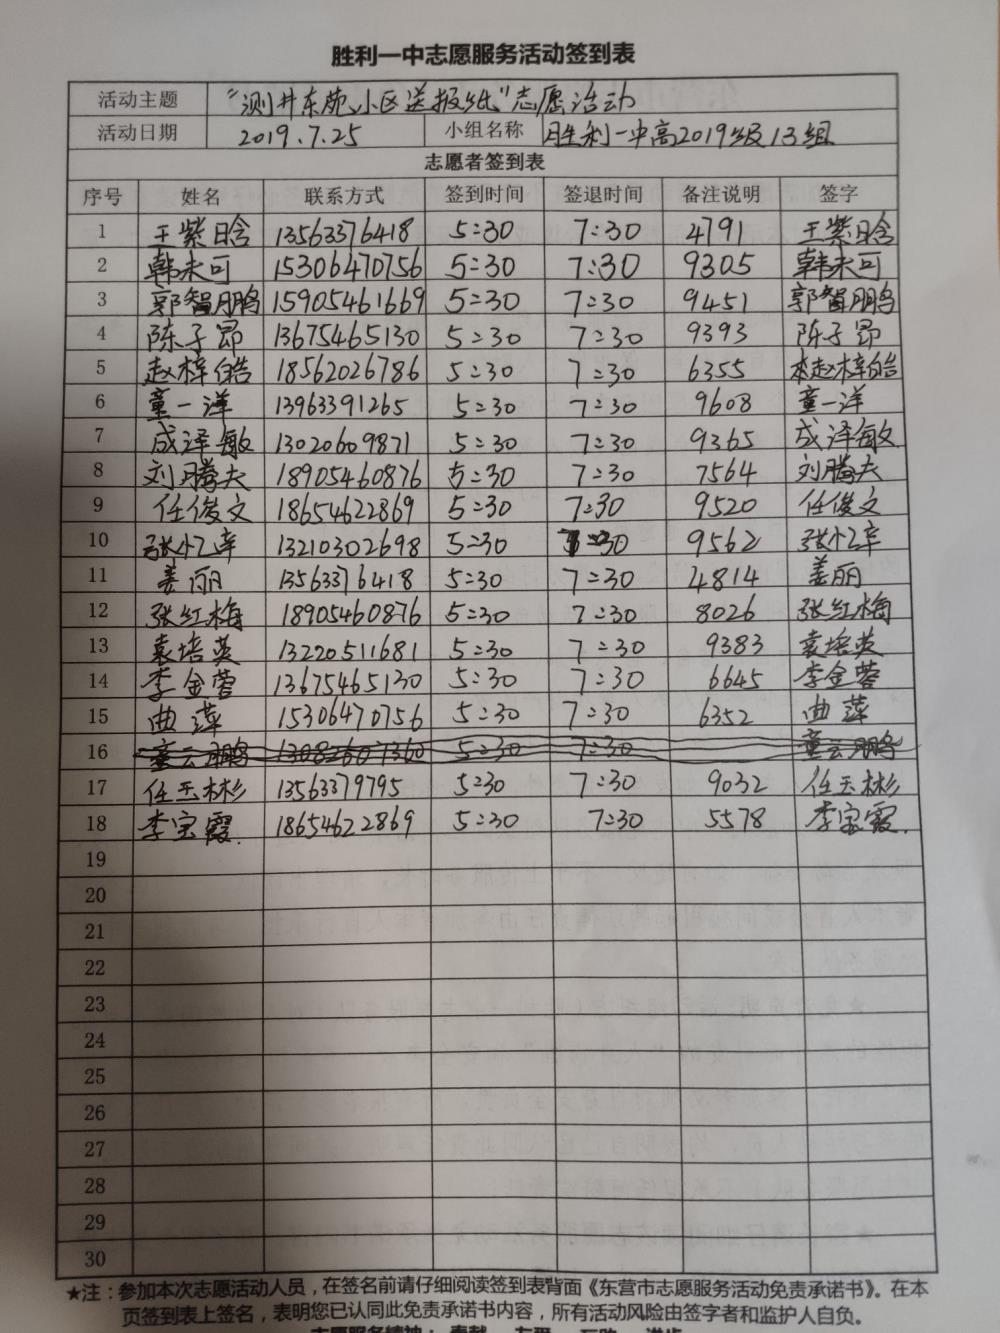 胜利一中志愿服务活动签到表
活动主题 “测井东苑小区送报纸”志愿活动
活动日期 2019.7.25 小组名称 胜利一中高2019级13组
志愿者签到表
序号 姓名 联系方式 签到时间 签退时间 备注说明 签字
1 王紫晗 13563376418 5:30 7:30 4791 王紫晗
2 韩未可 15306470756 5:30 7:30 9305 韩未可
3 郭智鹏 15905461669 5:30 7:30 9451 郭智鹏
4 陈子昂 13675465130 5:30 7:30 9393 陈子昂
5 赵梓皓 18562026786 5:30 7:30 6355 赵梓皓
6 童一洋 13963391265 5:30 7:30 9608 童一洋
7 成泽敏 13020609871 5:30 7:30 9365 成泽敏
8 刘腾夫 18905460876 5:30 7:30 7564 刘腾夫
9 任俊文 18654622869 5:30 7:30 9520 任俊文
10 张忆辛 13210302698 5:30 7:30 9562 张忆辛
11 姜丽 13563376418 5:30 7:30 4814 姜丽
12 张红梅 18905460876 5:30 7:30 8026 张红梅
13 袁培英 13220511681 5:30 7:30 9383 袁培英
14 李金蓉 13675465130 5:30 7:30 6645 李金蓉
15 曲萍 15306470756 5:30 7:30 6352 曲萍
16 童云鹏 13082607360 5:30 7:30 童云鹏
17 任玉彬 13563379795 5:30 7:30 9032 任玉彬
18 李宝霞. 18654622869 5:30 7:30 5578 李宝霞.
19
20
21
22
23
24
25
26
27
28
29
30
★注：参加本次志愿活动人员，在签名前请仔细阅读签到表背面《东营市志愿服务活动免责承诺书》。在本
页签到表上签名，表明您已认同此免责承诺书内容，所有活动风险由签字者和监护人自负。
志愿服务精神：奉献 友爱 互助 进步